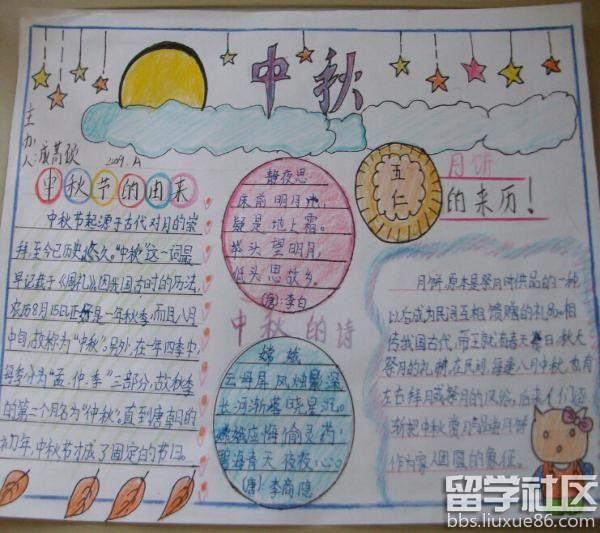 中秋
主办人:成蒿欤
2009.
中秋节的由来
中秋节起源于古代对月的崇
拜,至今已历史悠久。"中秋"这一词最
早记载于《周礼》因我国古时的历法,
农历8月15日正好是一年秋季,而且八月
中旬,故称为"中秋"。另外,在一年四季中,
每季分为"孟、仲、季"三部分,故秋季
的第二个月名为"仲秋"。直到唐朝的
初年,中秋节才成了固定的节日。
静夜思:
床前明月光,
疑是地上霜。
举头望明月,
低头思故乡。
(唐)李白
中秋的诗
嫦娥
云母屏风烛影深
长河渐落晓星沉。
嫦娥应悔偷灵药,
碧海青天夜夜心。
(唐)李商隐
五仁
月饼
的来历!
月饼,原本是祭月时供品的一种
以后成为民间互相馈赠的礼品。相
传我国古代,帝王就有春天祭日,秋天
祭月的礼制。在民间,每逢八月中秋,也有
左右拜月或祭月的风俗,后来人们逐
渐把中秋赏月与品尝月饼
作为家人团圆的象征。
留学社区
bbs.liuxue86.com